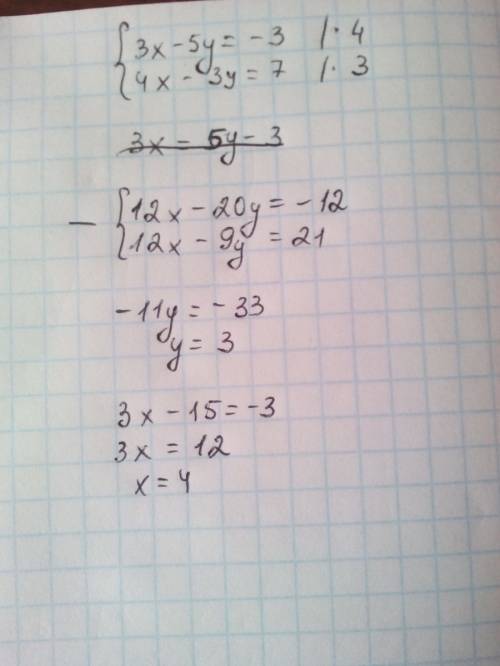 {3x - 5y = -3 | · 4
{4x - 3y = 7 | · 3
3x = 5y - 3
— {12x - 20y = -12
{12x - 9y = 21
-11y = -33
y = 3
3x - 15 = -3
3x = 12
x = 4